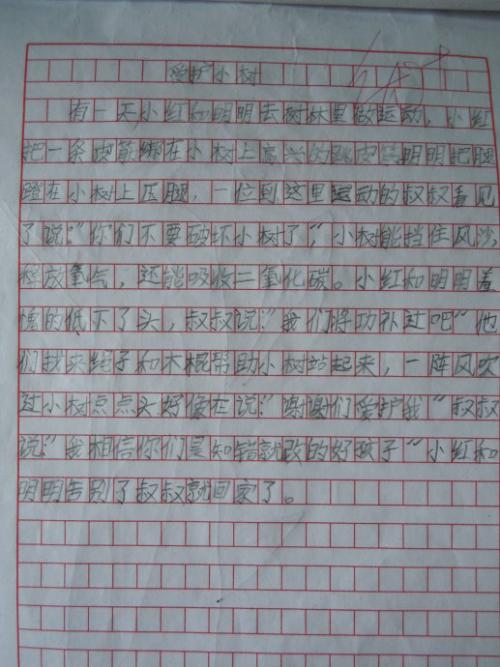 爱护小树
有一天小红和明明去树林里做运动，小红
把一条皮筋绑在小树上高兴的跳皮筋明明把腿
蹬在小树上压腿，一位到这里运动的叔叔看见
了说：“你们不要破坏小树了，”小树能挡住风沙
释放氧气，还能吸收二氧化碳。小红和明明羞
愧的低下了头，叔叔说：“我们将功补过吧”他
们找来绳子和木棍帮助小树站起来，一阵风吹
过小树点点头好像在说：“谢谢们爱护我”叔叔
说：“我相信你们是知错就改的好孩子”小红和
明明告别了叔叔就回家了。